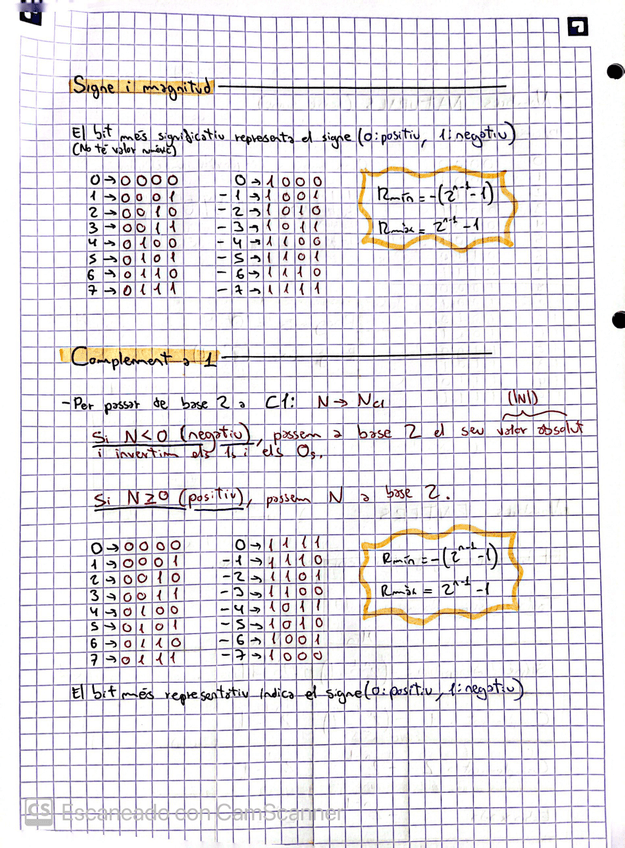 Signe i magnitud
El bit més significatiu representa el signe (0: positiu, 1: negatiu)
(No té valor numèric)
0 → 0 0 0 0
1 → 0 0 0 1
2 → 0 0 1 0
3 → 0 0 1 1
4 → 0 1 0 0
5 → 0 1 0 1
6 → 0 1 1 0
7 → 0 1 1 1
0 → 1 0 0 0
-1 → 1 0 0 1
-2 → 1 0 1 0
-3 → 1 0 1 1
-4 → 1 1 0 0
-5 → 1 1 0 1
-6 → 1 1 1 0
-7 → 1 1 1 1
Rmín = -(2^n-1 - 1)
Rmàx = 2^n-1 - 1
Complement a 1
- Per passar de base 2 a C1: N → NC1
(|N|)
Si N<0 (negatiu), passem a base 2 el seu valor absolut
i invertim els 1s i els 0s.
Si N≥0 (positiu), passem N a base 2.
0 → 0 0 0 0
1 → 0 0 0 1
2 → 0 0 1 0
3 → 0 0 1 1
4 → 0 1 0 0
5 → 0 1 0 1
6 → 0 1 1 0
7 → 0 1 1 1
0 → 1 1 1 1
-1 → 1 1 1 0
-2 → 1 1 0 1
-3 → 1 1 0 0
-4 → 1 0 1 1
-5 → 1 0 1 0
-6 → 1 0 0 1
-7 → 1 0 0 0
Rmín = -(2^n-1 - 1)
Rmàx = 2^n-1 - 1
El bit més representatiu indica el signe (0: positiu, 1: negatiu)
CS Escaneado con CamScanner